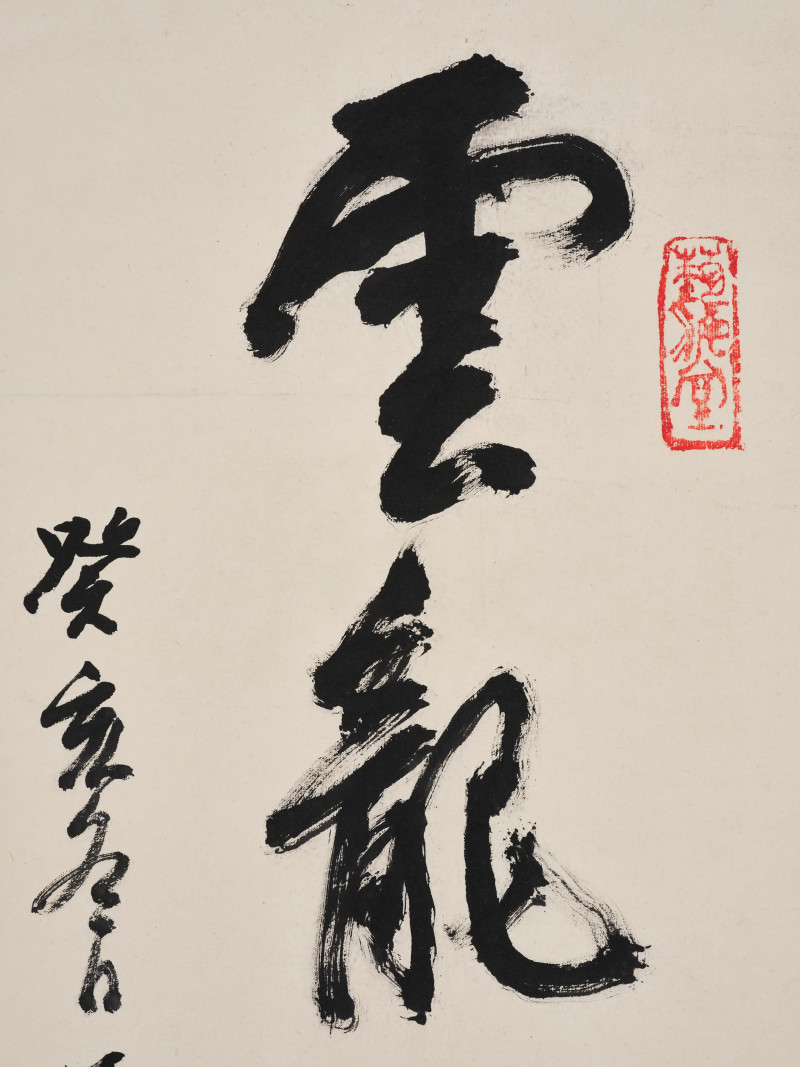 雲龍
癸亥冬日